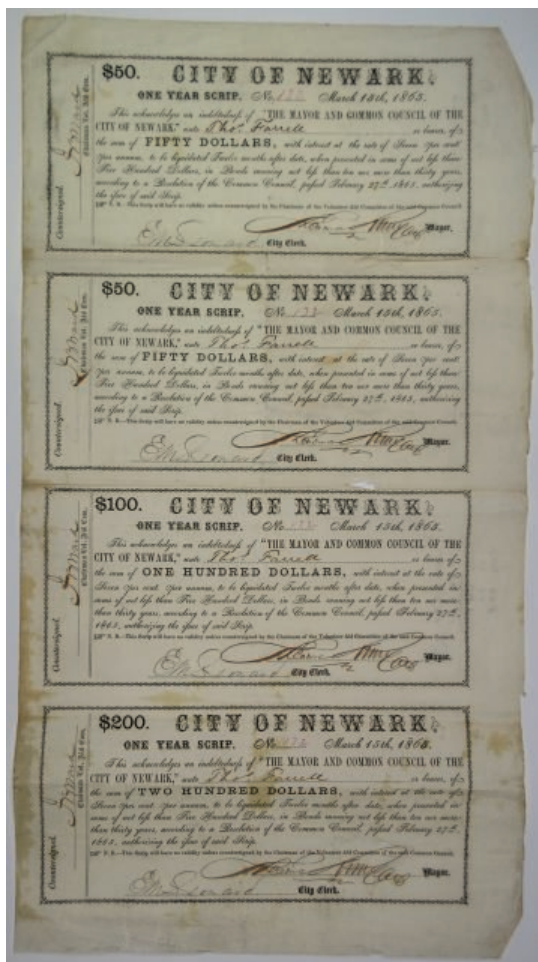 $50. CITY OF NEWARK.
ONE YEAR SCRIP. No. March 15th, 1865.
This acknowledges an indebtedness of "THE MAYOR AND COMMON COUNCIL OF THE
CITY OF NEWARK," unto Thos. Farrell or bearer, of
the sum of FIFTY DOLLARS, with interest at the rate of Seven per cent.
per annum, to be liquidated Twelve months after date, when presented in sums of not less than
Five Hundred Dollars, in Bonds running not less than ten nor more than thirty years,
according to a Resolution of the Common Council, passed February 27th, 1865, authorizing
the issue of said Scrip.
N. B.—This Scrip will have no validity unless countersigned by the Chairman of the Volunteer Aid Committee of the said Common Council.
Mayor.
City Clerk.
Countersigned.
Chairman Vol. Aid Com.
$50. CITY OF NEWARK.
ONE YEAR SCRIP. No. March 15th, 1865.
This acknowledges an indebtedness of "THE MAYOR AND COMMON COUNCIL OF THE
CITY OF NEWARK," unto Thos. Farrell or bearer, of
the sum of FIFTY DOLLARS, with interest at the rate of Seven per cent.
per annum, to be liquidated Twelve months after date, when presented in sums of not less than
Five Hundred Dollars, in Bonds running not less than ten nor more than thirty years,
according to a Resolution of the Common Council, passed February 27th, 1865, authorizing
the issue of said Scrip.
N. B.—This Scrip will have no validity unless countersigned by the Chairman of the Volunteer Aid Committee of the said Common Council.
Mayor.
City Clerk.
Countersigned.
Chairman Vol. Aid Com.
$100. CITY OF NEWARK.
ONE YEAR SCRIP. No. March 15th, 1865.
This acknowledges an indebtedness of "THE MAYOR AND COMMON COUNCIL OF THE
CITY OF NEWARK," unto Thos. Farrell or bearer, of
the sum of ONE HUNDRED DOLLARS, with interest at the rate of
Seven per cent. per annum, to be liquidated Twelve months after date, when presented in
sums of not less than Five Hundred Dollars, in Bonds running not less than ten nor more
than thirty years, according to a Resolution of the Common Council, passed February 27th,
1865, authorizing the issue of said Scrip.
N. B.—This Scrip will have no validity unless countersigned by the Chairman of the Volunteer Aid Committee of the said Common Council.
Mayor.
City Clerk.
Countersigned.
Chairman Vol. Aid Com.
$200. CITY OF NEWARK.
ONE YEAR SCRIP. No. March 15th, 1865.
This acknowledges an indebtedness of "THE MAYOR AND COMMON COUNCIL OF THE
CITY OF NEWARK," unto Thos. Farrell or bearer, of
the sum of TWO HUNDRED DOLLARS, with interest at the rate of
Seven per cent. per annum, to be liquidated Twelve months after date, when presented in
sums of not less than Five Hundred Dollars, in Bonds running not less than ten nor more
than thirty years, according to a Resolution of the Common Council, passed February 27th,
1865, authorizing the issue of said Scrip.
N. B.—This Scrip will have no validity unless countersigned by the Chairman of the Volunteer Aid Committee of the said Common Council.
Mayor.
City Clerk.
Countersigned.
Chairman Vol. Aid Com.